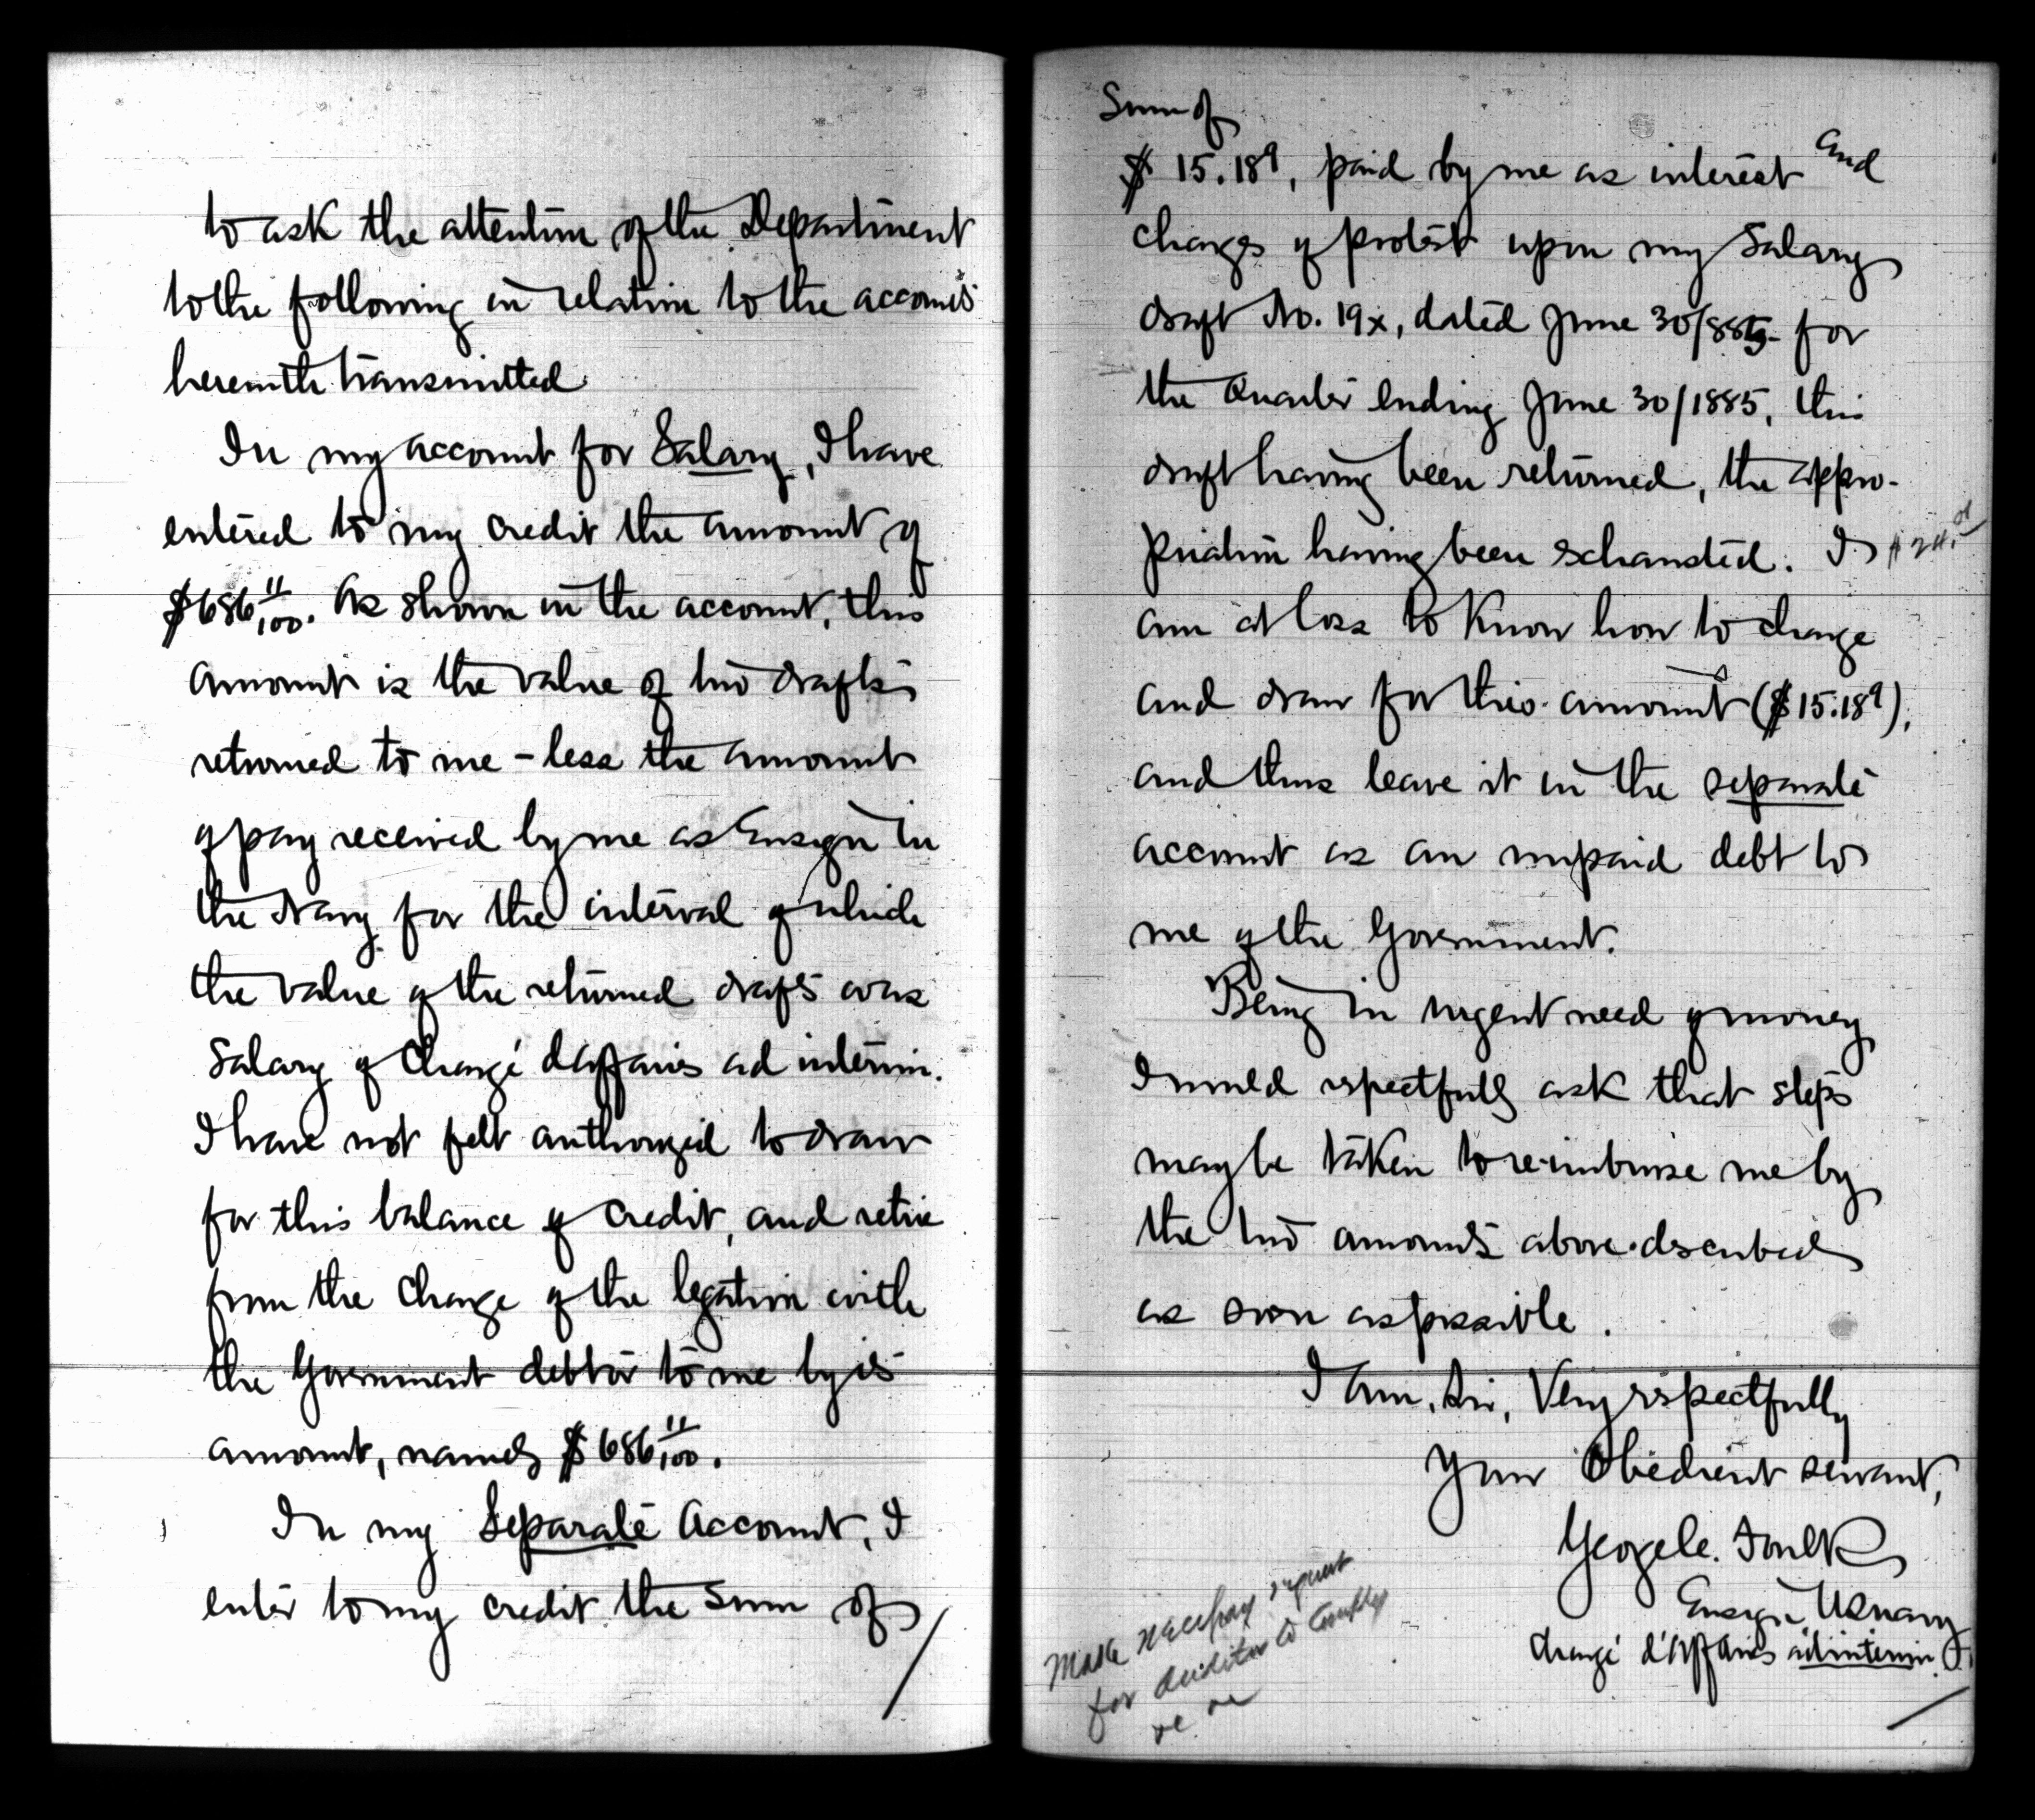 to ask the attention of the Department
to the following in relation to the accounts
herewith transmitted
In my account for Salary, I have
entered to my credit the amount of
$686 11/100. As shown in the account, this
amount is the value of two drafts
returned to me - less the amount
of pay received by me as Ensign in
the Navy for the interval of which
the value of the returned drafts was
Salary of Chargé d'affaires ad interim.
I have not felt authorized to draw
for this balance of credit, and retire
from the charge of the legation with
the Government debtor to me by its
amount, namely $686 11/100.
In my Separate Account, I
enter to my credit the sum of
Sum of
$15.18⁹, paid by me as interest and
charges of protest upon my Salary
draft No. 19x, dated June 30/885 for
the Quarter ending June 30/1885, this
draft having been returned, the appro-
priation having been exhausted. I
$24.
am at loss to know how to charge
and draw for this amount ($15.18⁹),
and thus leave it in the separate
account as an unpaid debt to
me of the Government.
Being in urgent need of money
I would respectfully ask that steps
may be taken to re-imburse me by
the two amounts above-described
as soon as possible.
I am, Sir, Very respectfully
Your Obedient servant,
George C. Foulk
Ensign U.S. Navy
Chargé d'Affaires ad interim
Make necessary request
for Auditor to comply